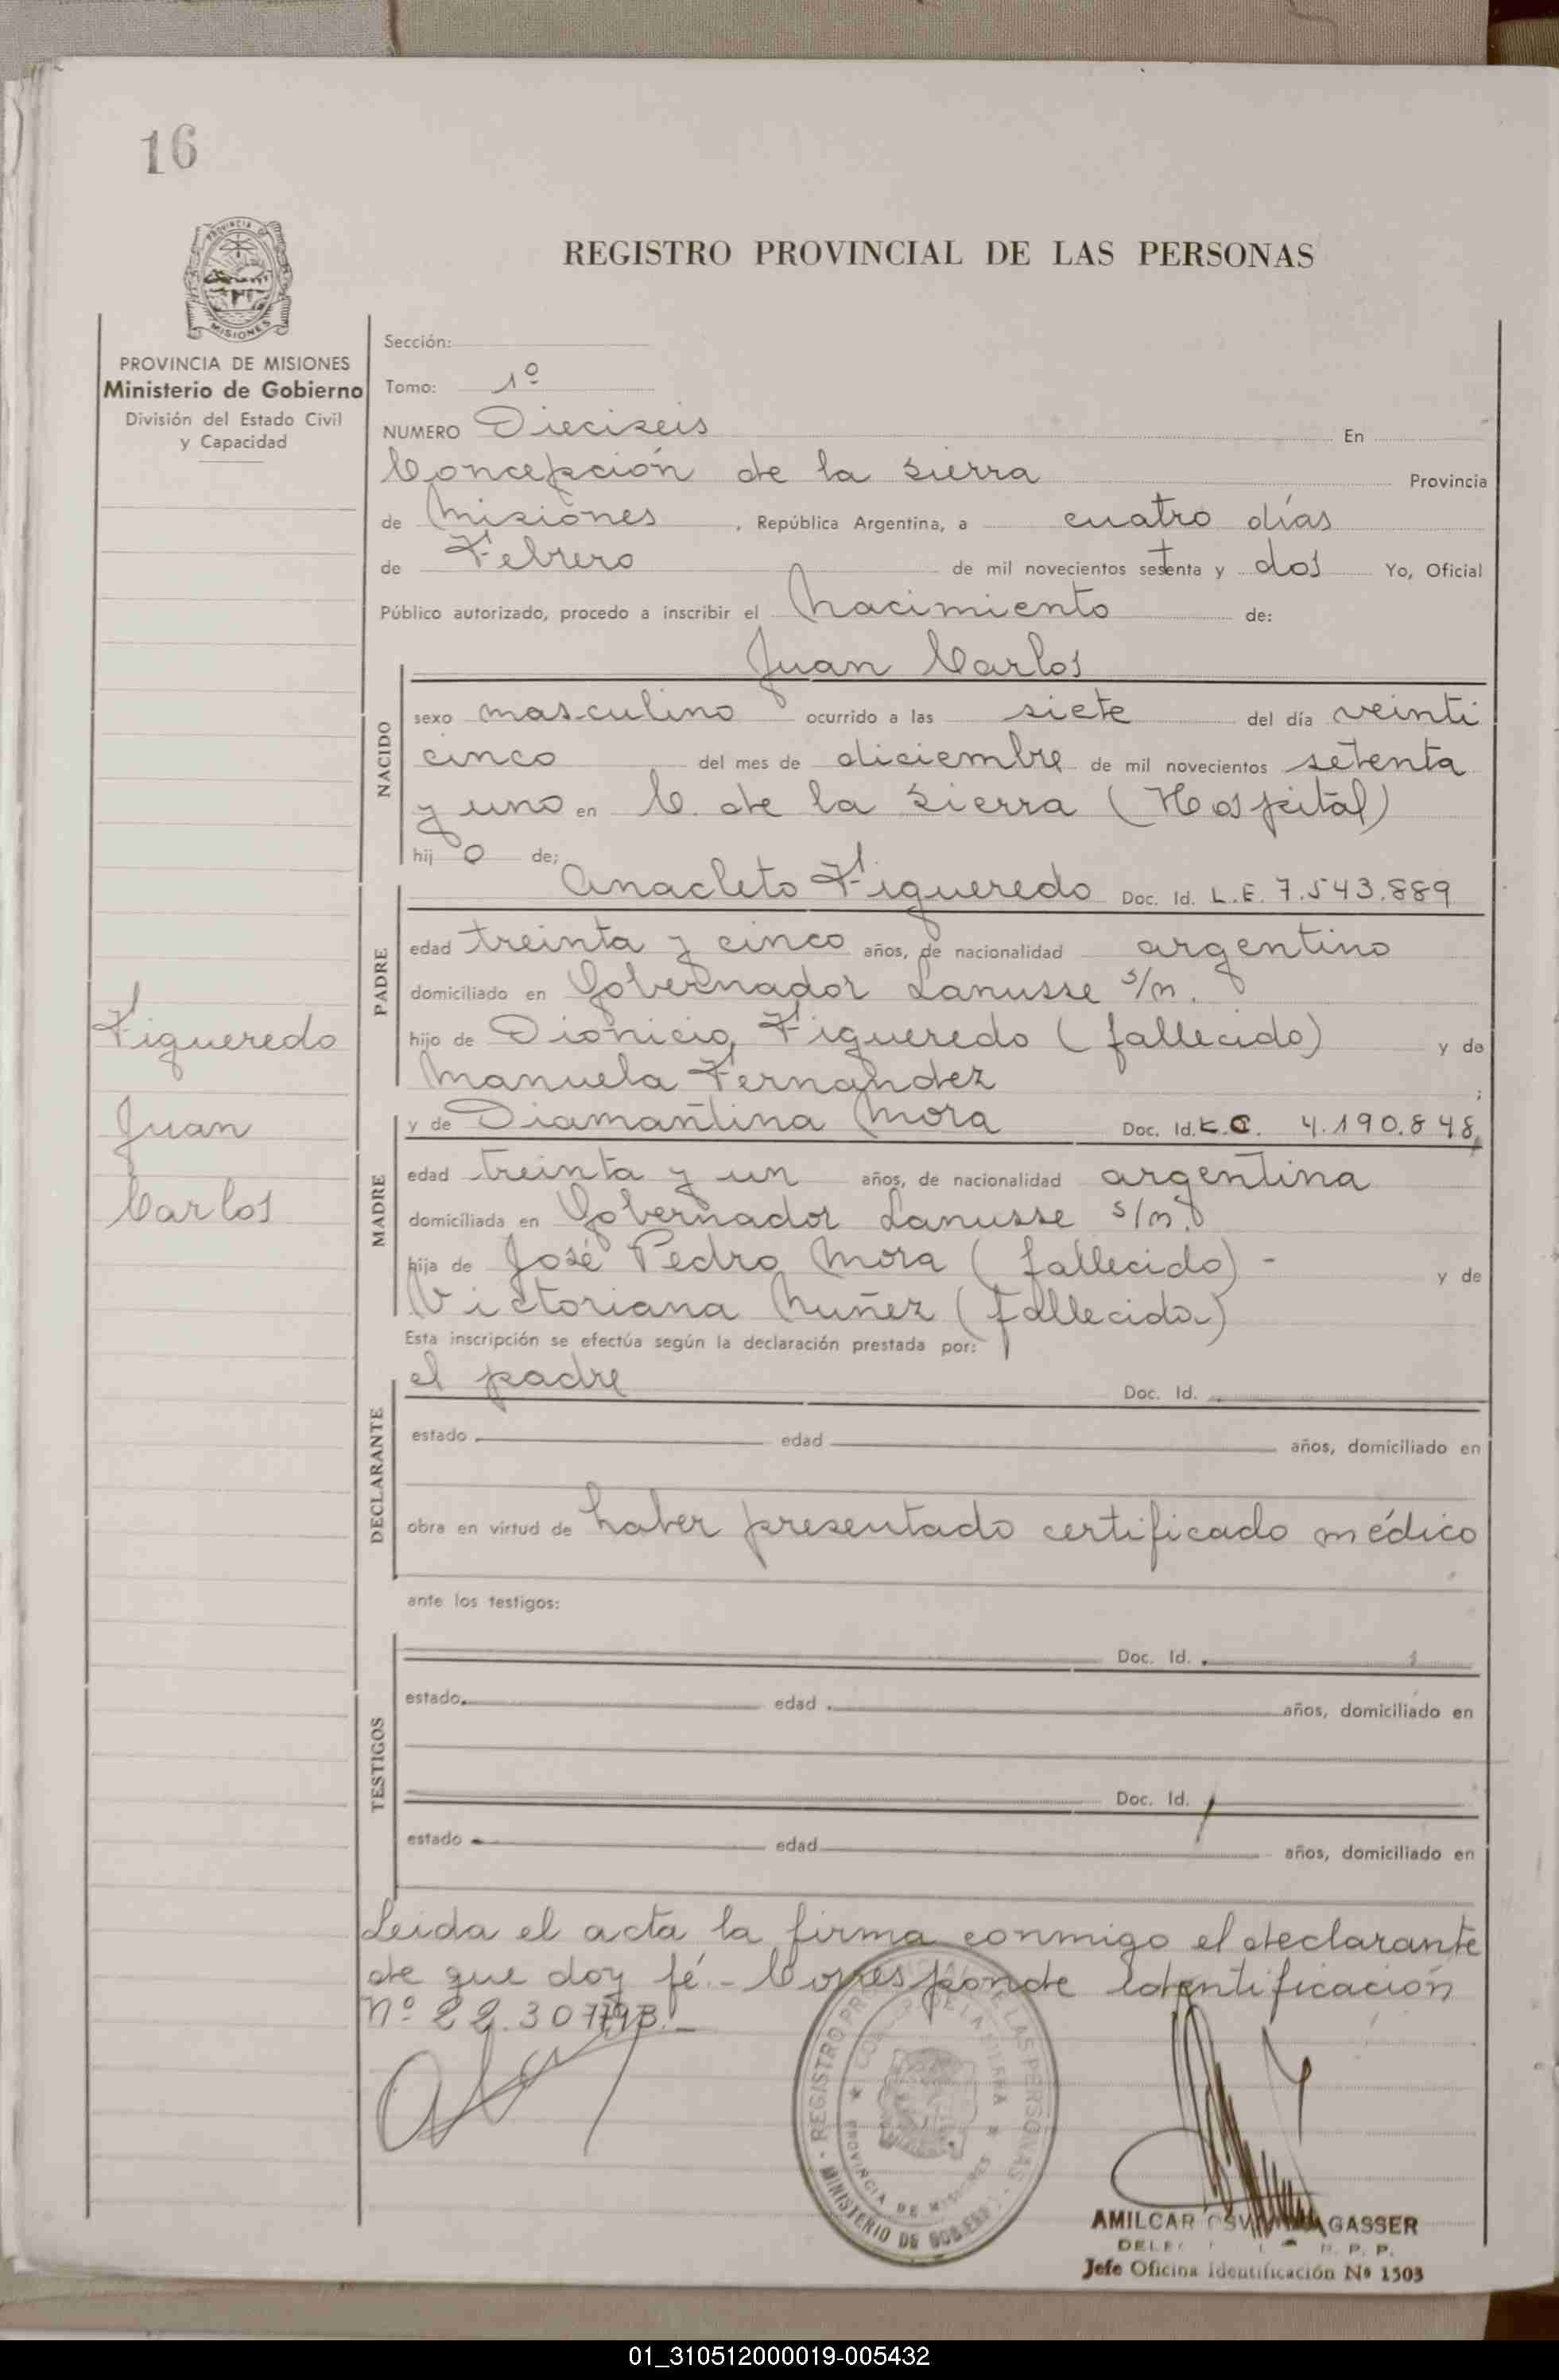 16
PROVINCIA DE
MISIONES
REGISTRO PROVINCIAL DE LAS PERSONAS
PROVINCIA DE MISIONES
Ministerio de Gobierno
División del Estado Civil
y Capacidad
Sección:
Tomo: 1º
NUMERO Dieciseis En
Concepción de la Sierra Provincia
de Misiones , República Argentina, a cuatro días
de Febrero de mil novecientos setenta y dos Yo, Oficial
Público autorizado, procedo a inscribir el Nacimiento de:
Juan Carlos
NACIDO
sexo masculino ocurrido a las siete del día veinti
cinco del mes de diciembre de mil novecientos setenta
y uno en C. de la Sierra (Hospital)
hij o de;
Anacleto Figueredo Doc. Id. L.E. 7.543.889
PADRE
edad treinta y cinco años, de nacionalidad argentino
domiciliado en Gobernador Lanusse s/n.
hijo de Dionicio Figueredo (fallecido) y de
Manuela Fernandez ;
Figueredo
Juan
Carlos
MADRE
y de Diamantina Mora Doc. Id. L.C. 4.190.848
edad treinta y un años, de nacionalidad argentina
domiciliada en Gobernador Lanusse s/n.
hija de José Pedro Mora (fallecido) - y de
Victoriana Nuñez (fallecida)
Esta inscripción se efectúa según la declaración prestada por:
el padre Doc. Id.
DECLARANTE
estado edad años, domiciliado en
obra en virtud de haber presentado certificado médico
ante los testigos:
TESTIGOS
Doc. Id.
estado edad años, domiciliado en
Doc. Id.
estado edad años, domiciliado en
Leida el acta la firma conmigo el declarante
de que doy fé.- Corresponde Identificación
Nº 22.30
REGISTRO PROVINCIAL DE LAS PERSONAS
DE LA SIERRA
PROVINCIA DE MISIONES
MINISTERIO DE GOBIERNO
AMILCAR GASSER
R. P. P.
Jefe Oficina Identificación Nº 1503
01_310512000019-005432